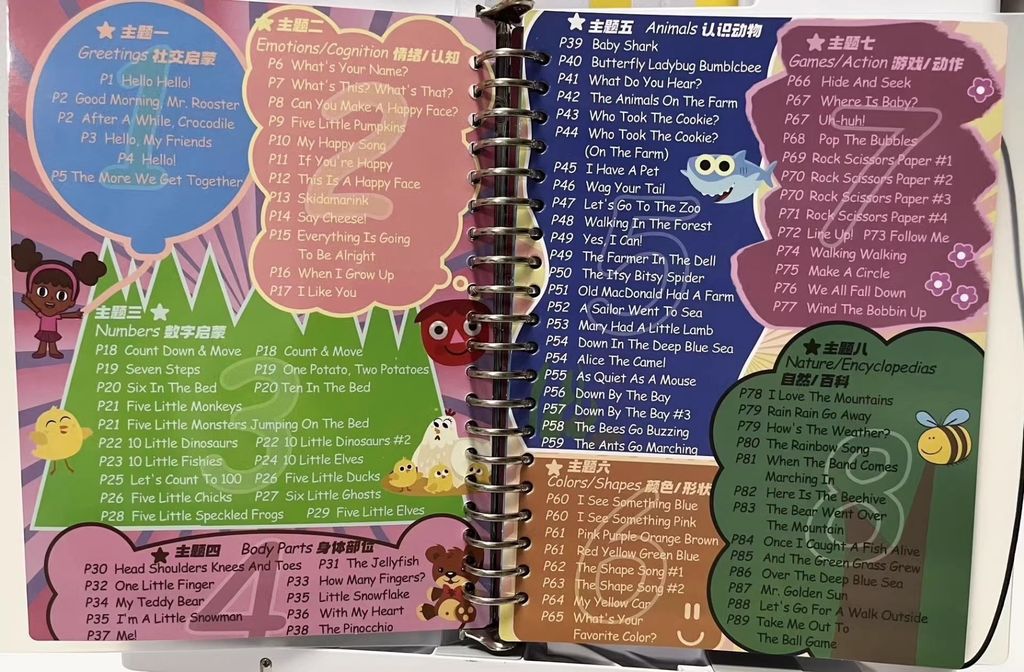 主题一
Greetings 社交启蒙
P1 Hello Hello!
P2 Good Morning, Mr. Rooster
P2 After A While, Crocodile
P3 Hello, My Friends
P4 Hello!
P5 The More We Get Together
1
主题二
Emotions/Cognition 情绪/认知
P6 What's Your Name?
P7 What's This? What's That?
P8 Can You Make A Happy Face?
P9 Five Little Pumpkins
P10 My Happy Song
P11 If You're Happy
P12 This Is A Happy Face
P13 Skidamarink
P14 Say Cheese!
P15 Everything Is Going
To Be Alright
P16 When I Grow Up
P17 I Like You
2
主题三
Numbers 数字启蒙
P18 Count Down & Move P18 Count & Move
P19 Seven Steps P19 One Potato, Two Potatoes
P20 Six In The Bed P20 Ten In The Bed
P21 Five Little Monkeys
P21 Five Little Monsters Jumping On The Bed
P22 10 Little Dinosaurs P22 10 Little Dinosaurs #2
P23 10 Little Fishies P24 10 Little Elves
P25 Let's Count To 100 P26 Five Little Ducks
P26 Five Little Chicks P27 Six Little Ghosts
P28 Five Little Speckled Frogs P29 Five Little Elves
3
主题四 Body Parts 身体部位
P30 Head Shoulders Knees And Toes P31 The Jellyfish
P32 One Little Finger P33 How Many Fingers?
P34 My Teddy Bear P35 Little Snowflake
P35 I'm A Little Snowman P36 With My Heart
P37 Me! P38 The Pinocchio
4
主题五 Animals 认识动物
P39 Baby Shark
P40 Butterfly Ladybug Bumblebee
P41 What Do You Hear?
P42 The Animals On The Farm
P43 Who Took The Cookie?
P44 Who Took The Cookie?
(On The Farm)
P45 I Have A Pet
P46 Wag Your Tail
P47 Let's Go To The Zoo
P48 Walking In The Forest
P49 Yes, I Can!
P49 The Farmer In The Dell
P50 The Itsy Bitsy Spider
P51 Old MacDonald Had A Farm
P52 A Sailor Went To Sea
P53 Mary Had A Little Lamb
P54 Down In The Deep Blue Sea
P54 Alice The Camel
P55 As Quiet As A Mouse
P56 Down By The Bay
P57 Down By The Bay #3
P58 The Bees Go Buzzing
P59 The Ants Go Marching
5
主题六
Colors/Shapes 颜色/形状
P60 I See Something Blue
P60 I See Something Pink
P61 Pink Purple Orange Brown
P61 Red Yellow Green Blue
P62 The Shape Song #1
P63 The Shape Song #2
P64 My Yellow Car
P65 What's Your
Favorite Color?
6
主题七
Games/Action 游戏/动作
P66 Hide And Seek
P67 Where Is Baby?
P67 Uh-huh!
P68 Pop The Bubbles
P69 Rock Scissors Paper #1
P70 Rock Scissors Paper #2
P70 Rock Scissors Paper #3
P71 Rock Scissors Paper #4
P72 Line Up! P73 Follow Me
P74 Walking Walking
P75 Make A Circle
P76 We All Fall Down
P77 Wind The Bobbin Up
7
主题八
Nature/Encyclopedias
自然/百科
P78 I Love The Mountains
P79 Rain Rain Go Away
P79 How's The Weather?
P80 The Rainbow Song
P81 When The Band Comes
Marching In
P82 Here Is The Beehive
P83 The Bear Went Over
The Mountain
P84 Once I Caught A Fish Alive
P85 And The Green Grass Grew
P86 Over The Deep Blue Sea
P87 Mr. Golden Sun
P88 Let's Go For A Walk Outside
P89 Take Me Out To
The Ball Game
8